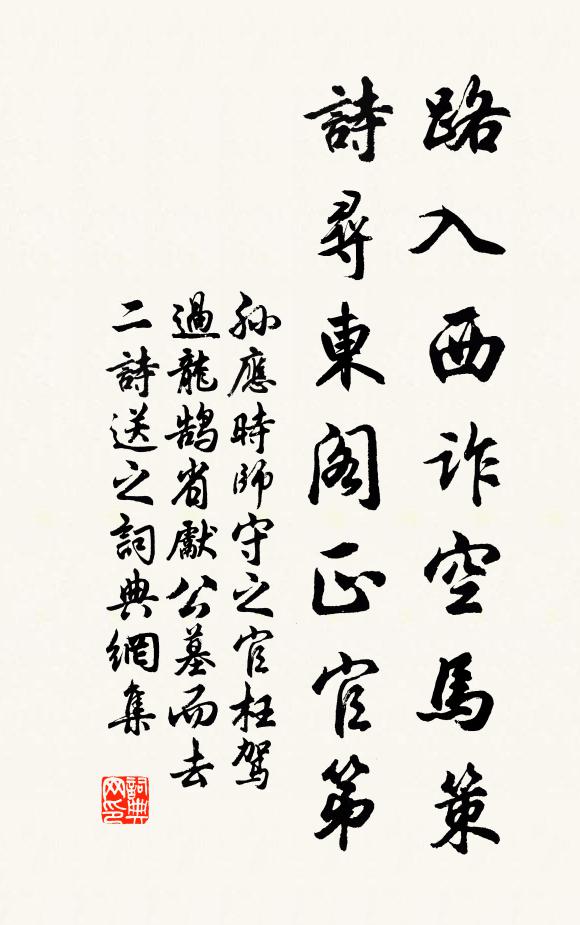 路入西詐空馬策
詩尋東閣正官第
孫應時師守之官枉駕
過龍鵠省獻公墓而去
二詩送之詞典網集
詞典
网印